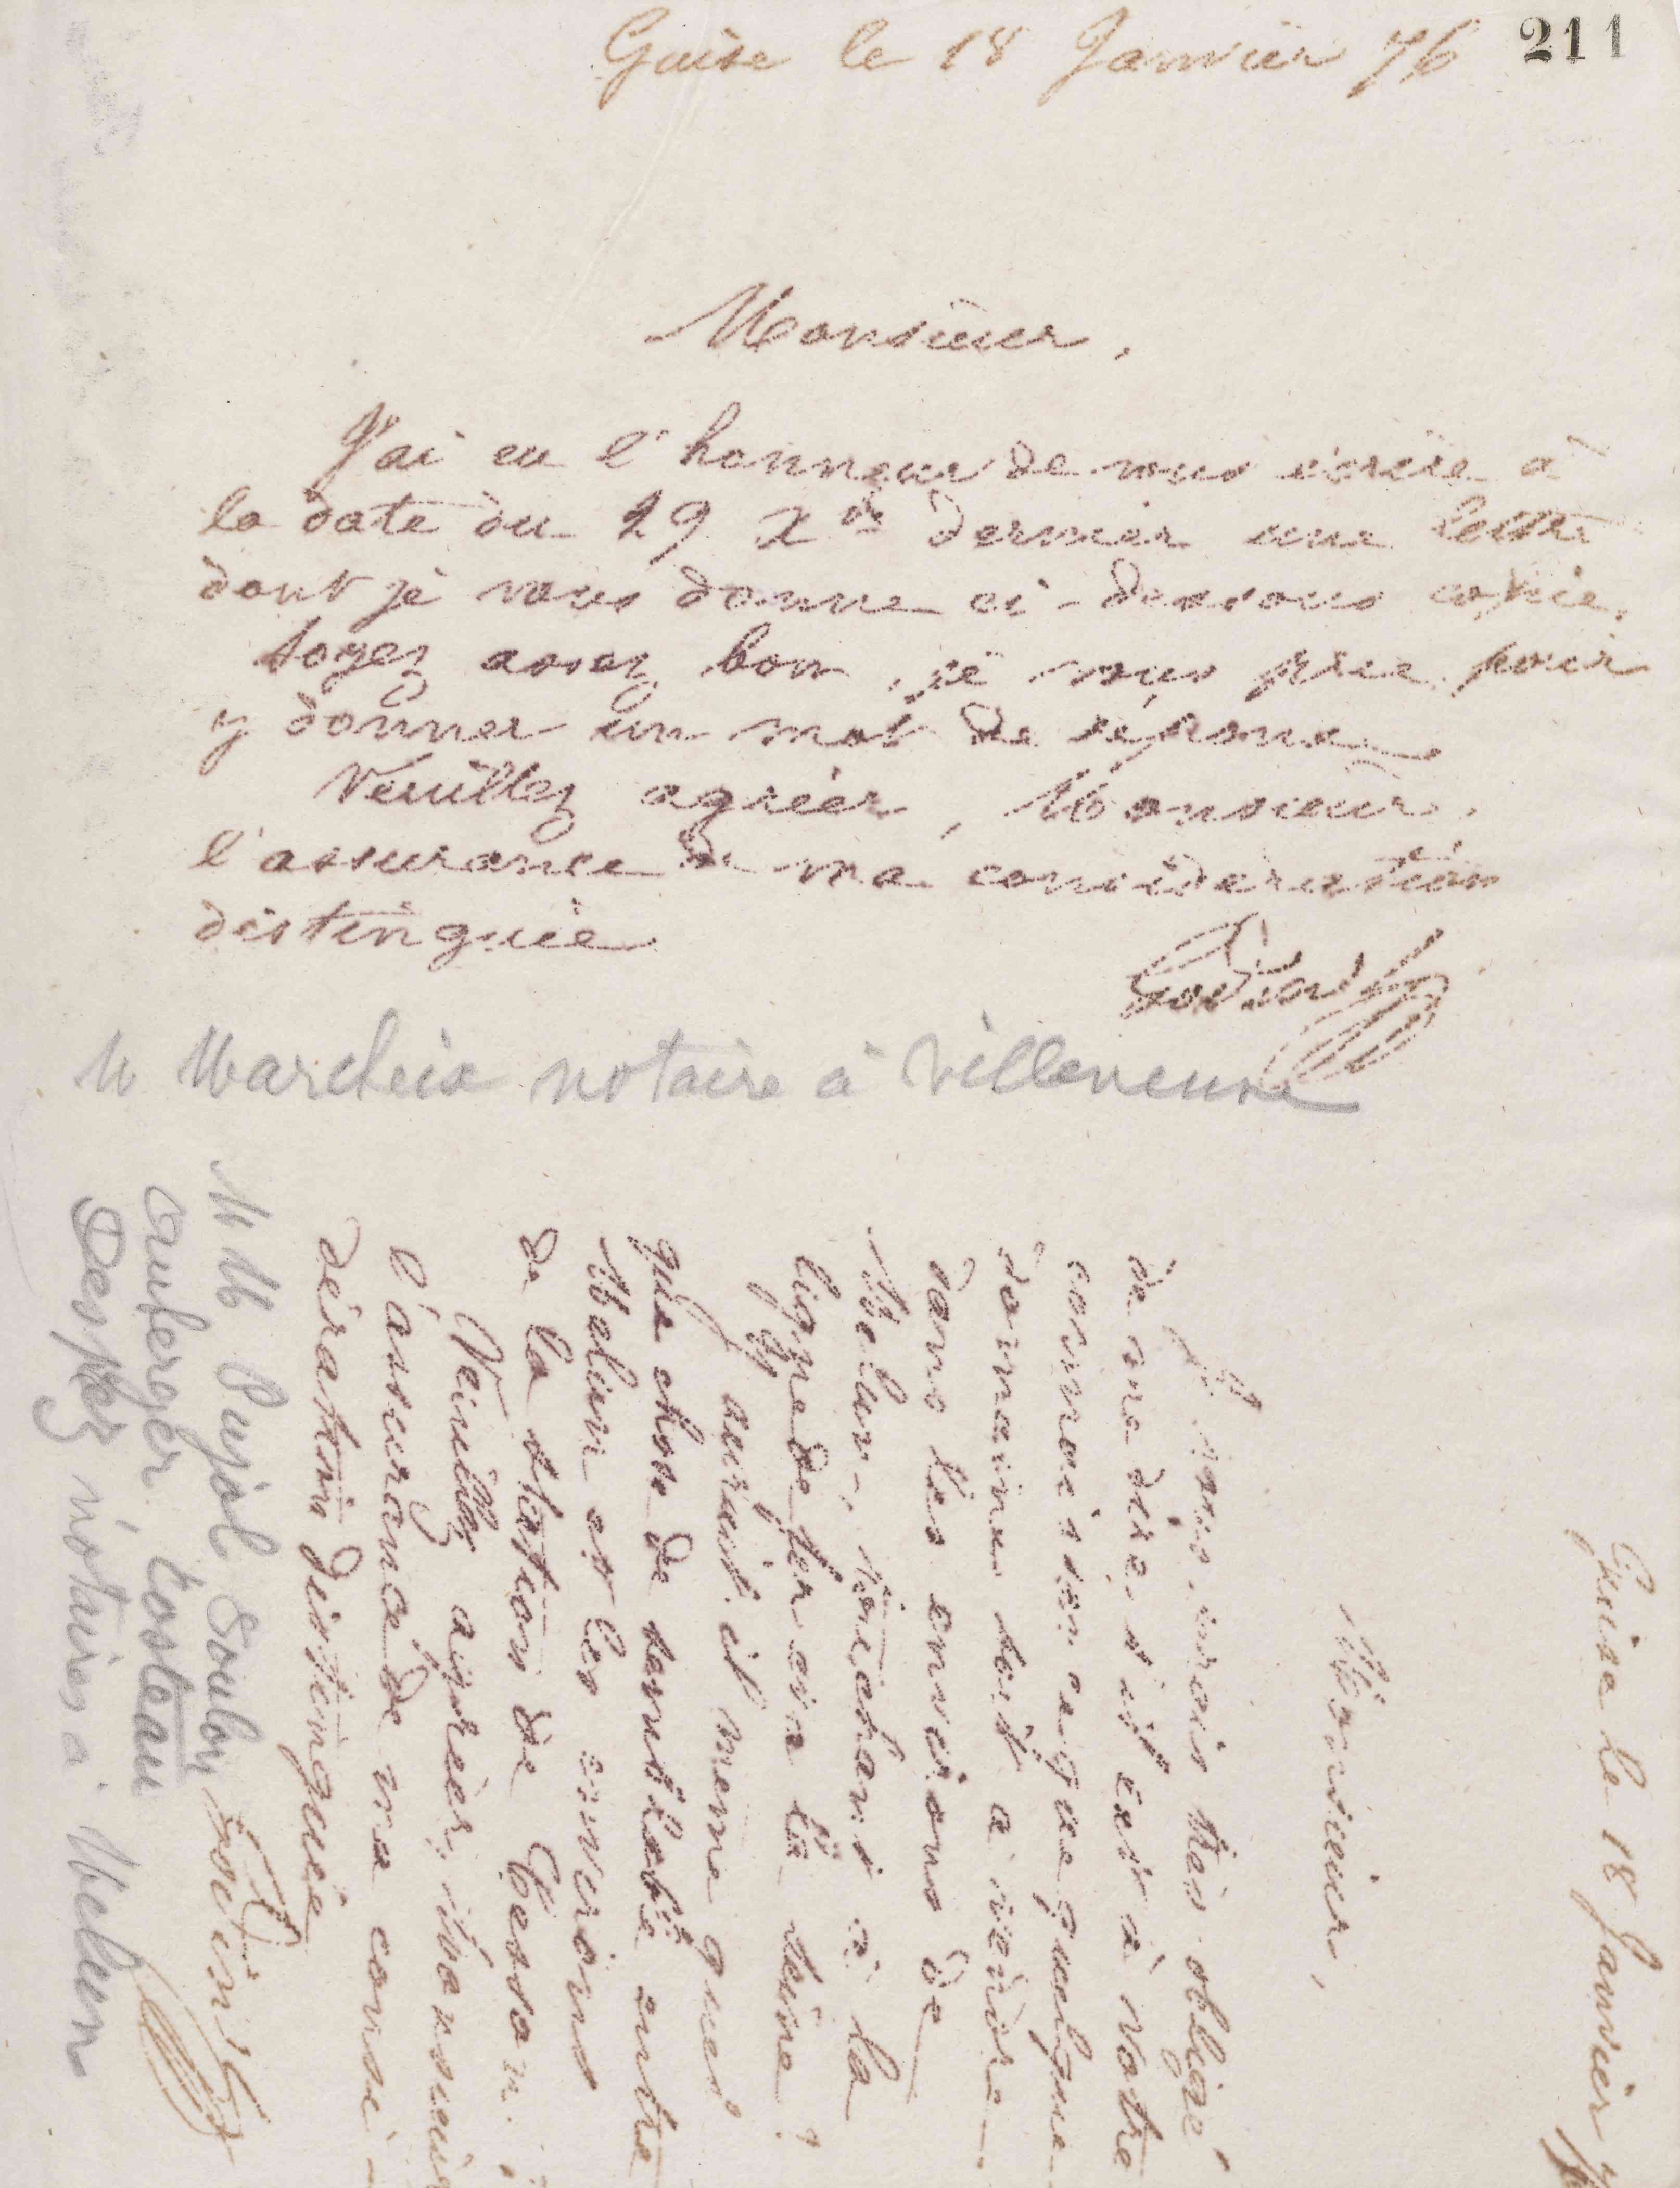 Guise le 18 Janvier 76
211
Monsieur,
J'ai eu l'honneur de vous écrire à
la date du 29 Xbre dernier une lettre
dont je vous donne ci-dessous copie.
Soyez assez bon, je vous prie, pour
y donner un mot de réponse
Veuillez agréer, Monsieur,
l'assurance de ma considération
distinguée
Godin
M Marcheix notaire à Villeneuve
Guise le 18 Janvier
Monsieur,
Je vous serais très obligé
de me dire s'il est à votre
connaissance que quelque
domaine soit à vendre
dans les environs de
Melun, touchant à la
ligne de fer ou à la Seine ?
Y aurait-il même quel
que chose de semblable entre
Melun et les environs
de la station de Cesson.
Veuillez agréer, Monsieur
l'assurance de ma consi-
dération distinguée
Godin
M M Pujol Souby
Auberger Costeau
Despez notaires à Melun